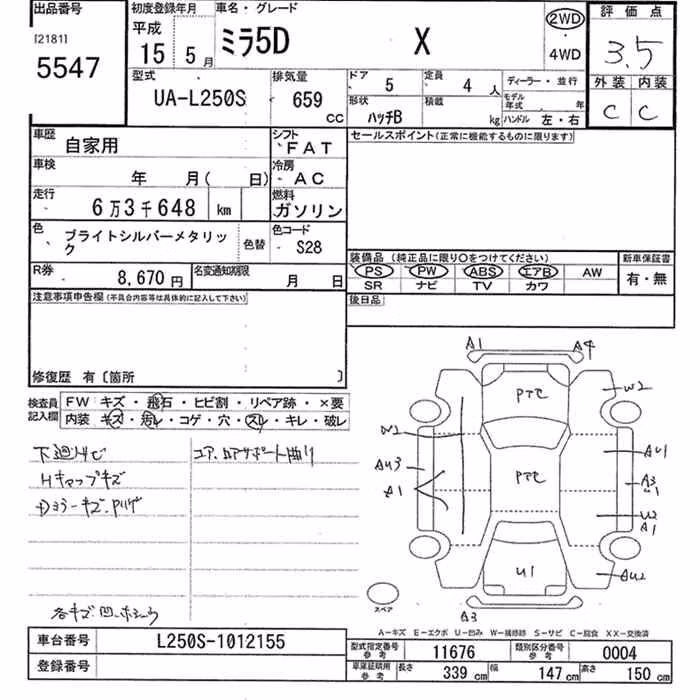 出品番号
[2181]
5547
初度登録年月
平成
15 5月
車名・グレード
ミラ5D X
2WD
・
4WD
評価点
3.5
外装 内装
C C
型式
UA-L250S
排気量
659 CC
ドア 5
定員 4人
ディーラー・並行
形状 ハッチB
積載 kg
モデル年式 年
ハンドル 左・右
車歴 自家用
シフト FAT
セールスポイント(正常に機能するものに限ります)
車検 年 月( 日)
冷房 AC
走行 6万3千648 km
燃料 ガソリン
色 ブライトシルバーメタリック
色替
色コード S28
R券 8,670円
名変通知期限 月 日
装備品(純正品に限り○をつけてください)
新車保証書
PS PW ABS エアB AW
SR ナビ TV カワ
有・無
後日品
注意事項申告欄(不具合内容等は具体的に記入して下さい)
修復歴 有〔箇所 〕
検査員記入欄
FW キズ・飛石・ヒビ割・リペア跡・×要
内装 キズ・汚レ・コゲ・穴・スレ・キレ・破レ
下廻サビ
Hキャップキズ
エアロサポート曲り
A1 A4
PTE
W2
W2
AU3
A1
PTE
AU1
A3
U2
A1
U1
AU2
スペア
A3
A-キズ E-エクボ U-凹み W-補修跡 S-サビ C-腐食 XX-交換済
車台番号 L250S-1012155
登録番号
型式指定番号 参考 11676
類別区分番号 参考 0004
車庫証明用 参考 長さ 339 cm 幅 147 cm 高さ 150 cm